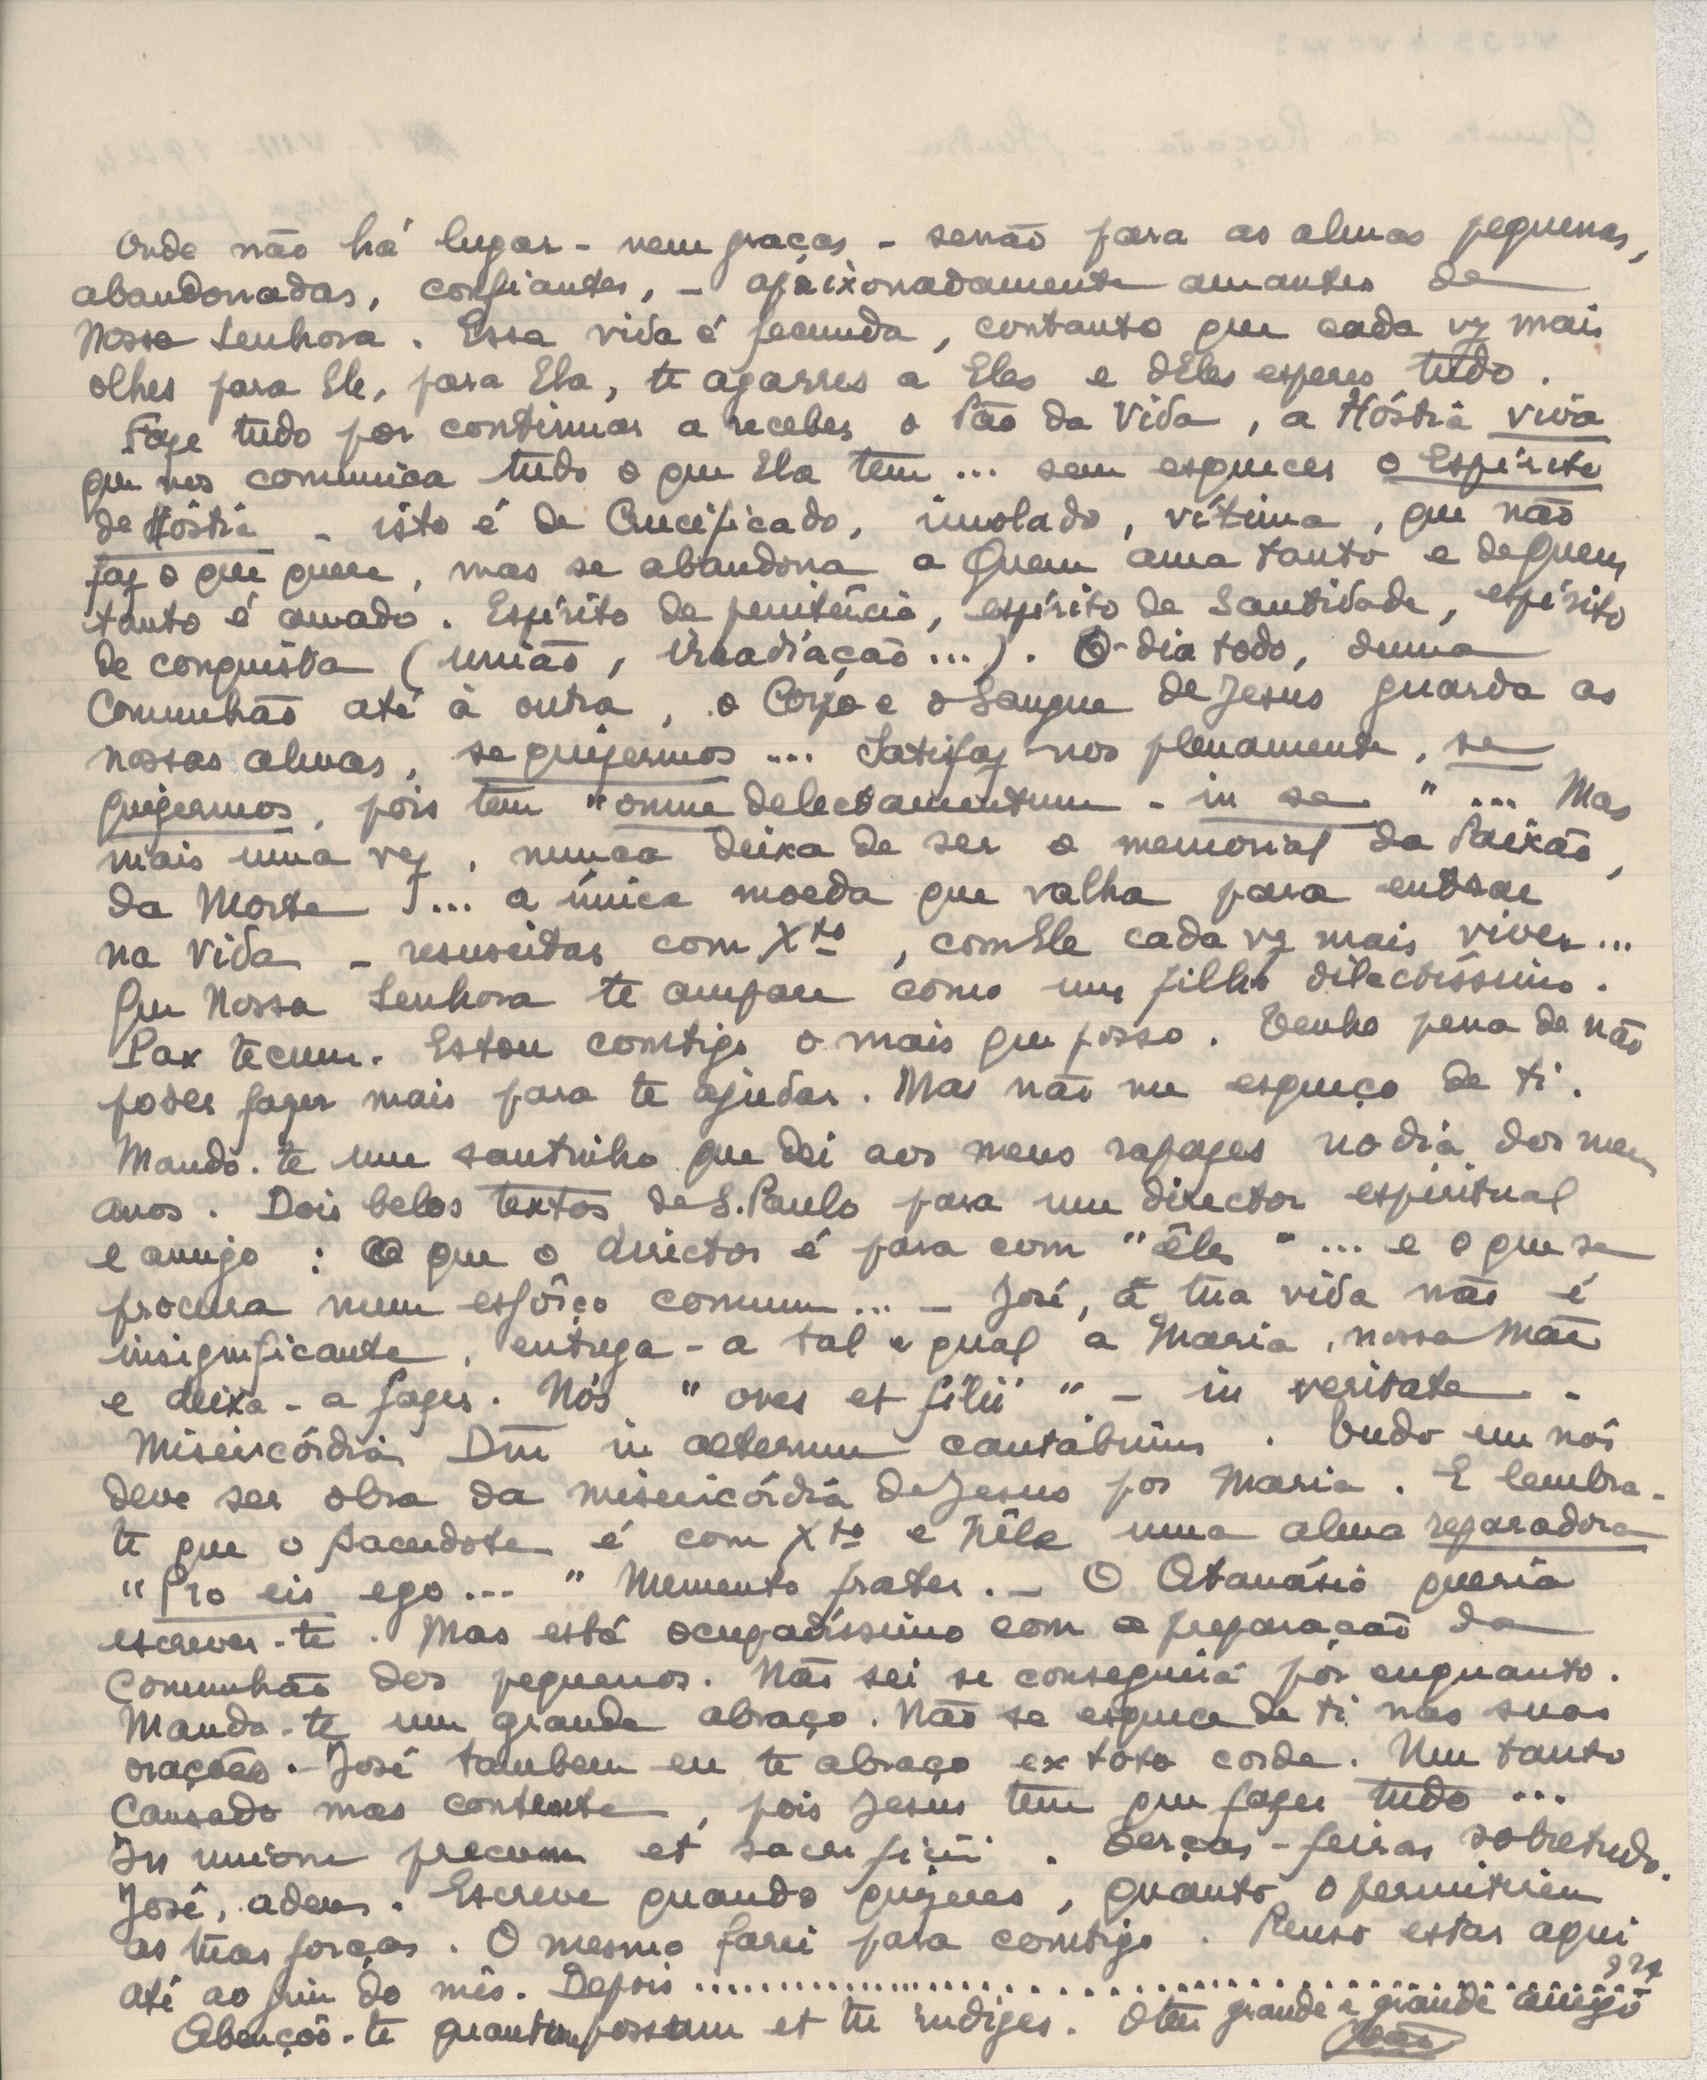 Onde não há lugar - nem graças - senão para as almas pequenas,
abandonadas, confiantes, - apaixonadamente amantes de
Nossa Senhora. Essa vida é fecunda, contanto que cada vez mais
olhes para Ele, para Ela, te agarres a Eles e dEles esperes tudo.
Faze tudo por continuar a receber o Pão da Vida, a Hóstia viva
que nos comunica tudo o que Ela tem... sem esquecer o Espírito
de Hóstia - isto é de Crucificado, imolado, vítima, que não
faz o que quere, mas se abandona a Quem ama tanto e de Quem
tanto é amado. Espírito de penitência, espírito de Santidade, espírito
de conquista (união, irradiação...). O dia todo, duma
Comunhão até à outra, o Corpo e o Sangue de Jesus guarda as
nossas almas, se quizermos... Satisfaz-nos plenamente, se
quizermos, pois tem "omne delectamentum - in se"... Mas
mais uma vez, nunca deixa de ser o memorial da Paixão,
da Morte!... a única moeda que valha para entrar
na Vida - resuscitar com Xto, com Ele cada vez mais viver...
Que Nossa Senhora te ampare como um filho dilectíssimo.
Pax tecum. Estou comtigo o mais que posso. Tenho pena de não
poder fazer mais para te ajudar. Mas não me esqueço de ti.
Mando-te um santinho que dei aos meus rapazes no dia dos meus
anos. Dois belos textos de S. Paulo para um director espiritual
e amigo: O que o director é para com "êles"... e o que se
procura num esfôrço comum... - José, a tua vida não é
insignificante, entrega-a tal e qual a Maria, nossa Mãe
e deixa-a fazer. Nós "oves et filii" - in veritate -
Misericórdia Dni in aeternum cantabimus. Tudo em nós
deve ser obra da misericórdia de Jesus por Maria. E lembra-
te que o sacerdote é com Xto e nEle uma alma reparadora
"Pro eis ego..." Memento frater. - O Atanásio queria
escrever-te. Mas está ocupadíssimo com a preparação da
Comunhão dos pequenos. Não sei se conseguirá por enquanto.
Manda-te um grande abraço. Não se esquece de ti nas suas
orações. - José tambem eu te abraço ex toto corde. Um tanto
cansado mas contente, pois Jesus tem que fazer tudo...
In unione precum et sacrificii. Terças-feiras sobretudo.
José, adeus. Escreve quando quizeres, quanto o permitirem
as tuas forças. O mesmo farei para comtigo. Penso estar aqui
até ao fim do mês. Depois ........................ ???
Abençoo-te quantum possum et tu indiges. O teu grande e grande amigo